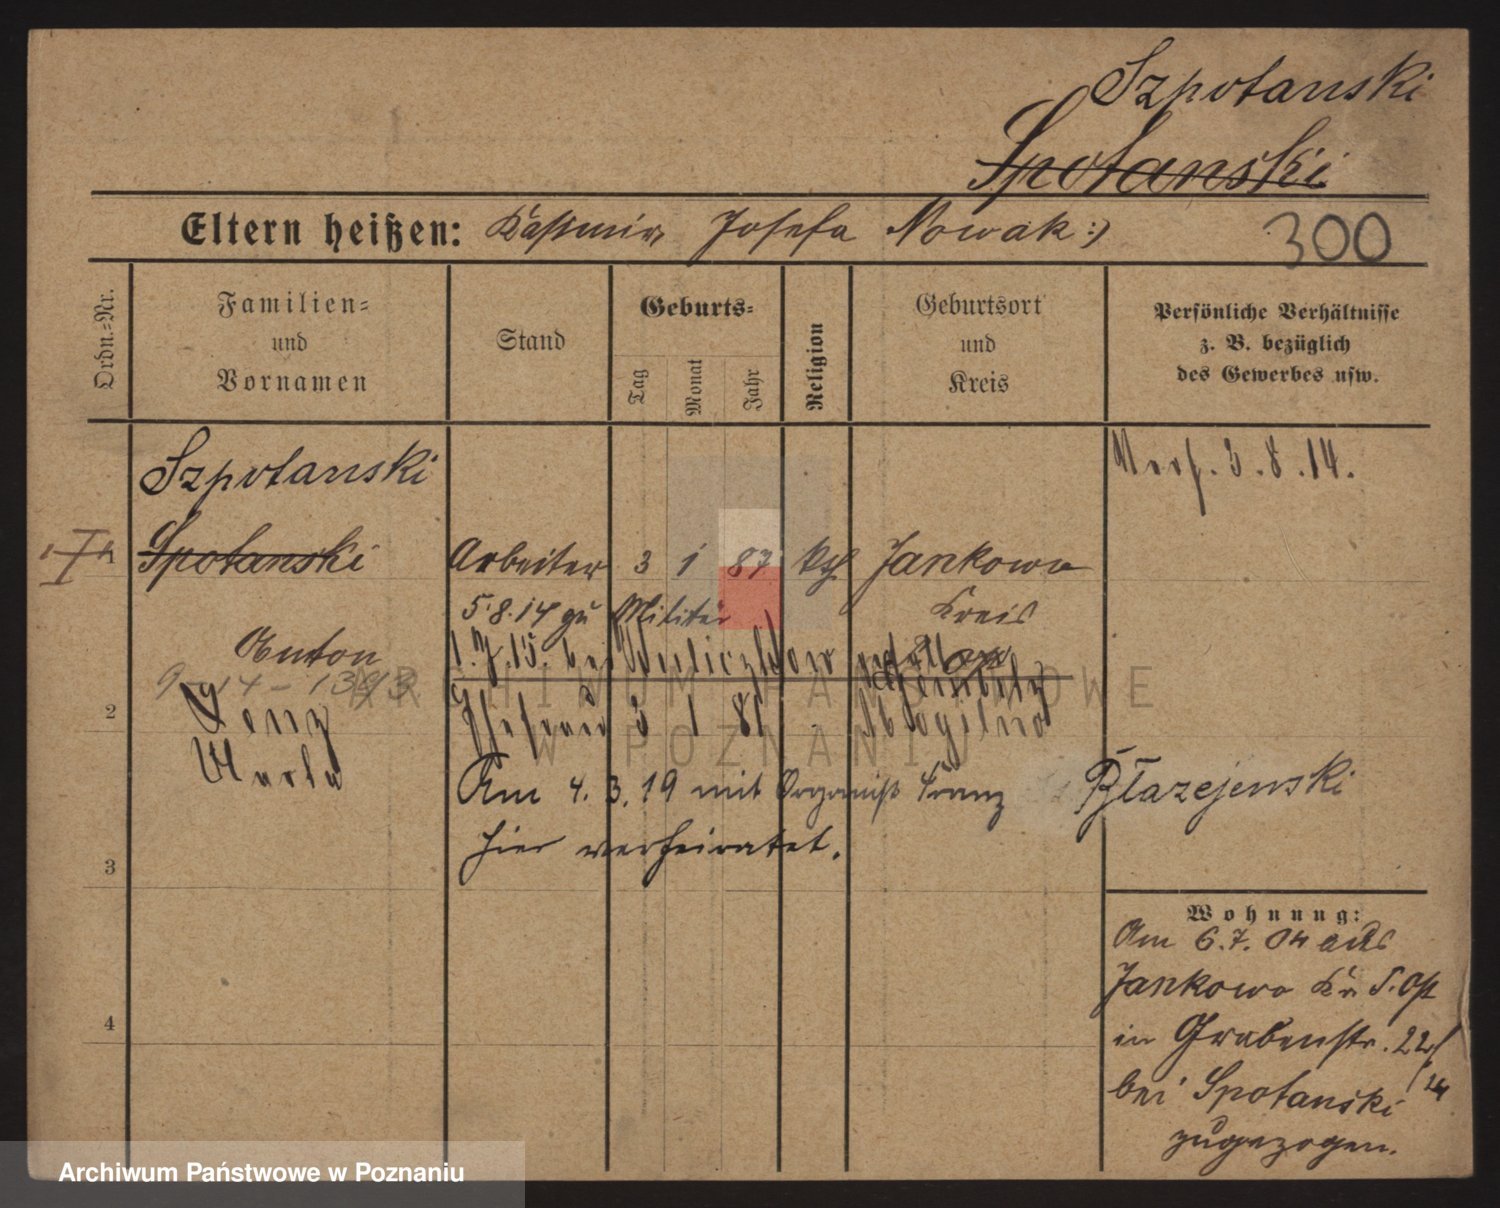 Szpotanski
Spotanski
Eltern heißen: Kasimir Josefa Nowak :)
300
Ordn.=Nr.
Familien=
und
Vornamen
Stand
Geburts=
Tag
Monat
Jahr
Religion
Geburtsort
und
Kreis
Persönliche Verhältnisse
z. B. bezüglich
des Gewerbes usw.
Szpotanski
3.8.14.
1
Spotanski
Arbeiter 3 1 87 kth Jankowo
5.8.14 zu Militär
Kreis
Anton
1.7.15. bei
9-14-1393
2
3 1 81 Mogilno
ARCHIWUM PAŃSTWOWE
W POZNANIU
Am 4.3.19 mit Organist Franz Błazejewski
hier verheiratet.
3
Wohnung:
Am 6.7.04 aus
Jankowo Kr.
in Grabenstr. 22/
bei Spotanski /24
zugezogen.
4
Archiwum Państwowe w Poznaniu